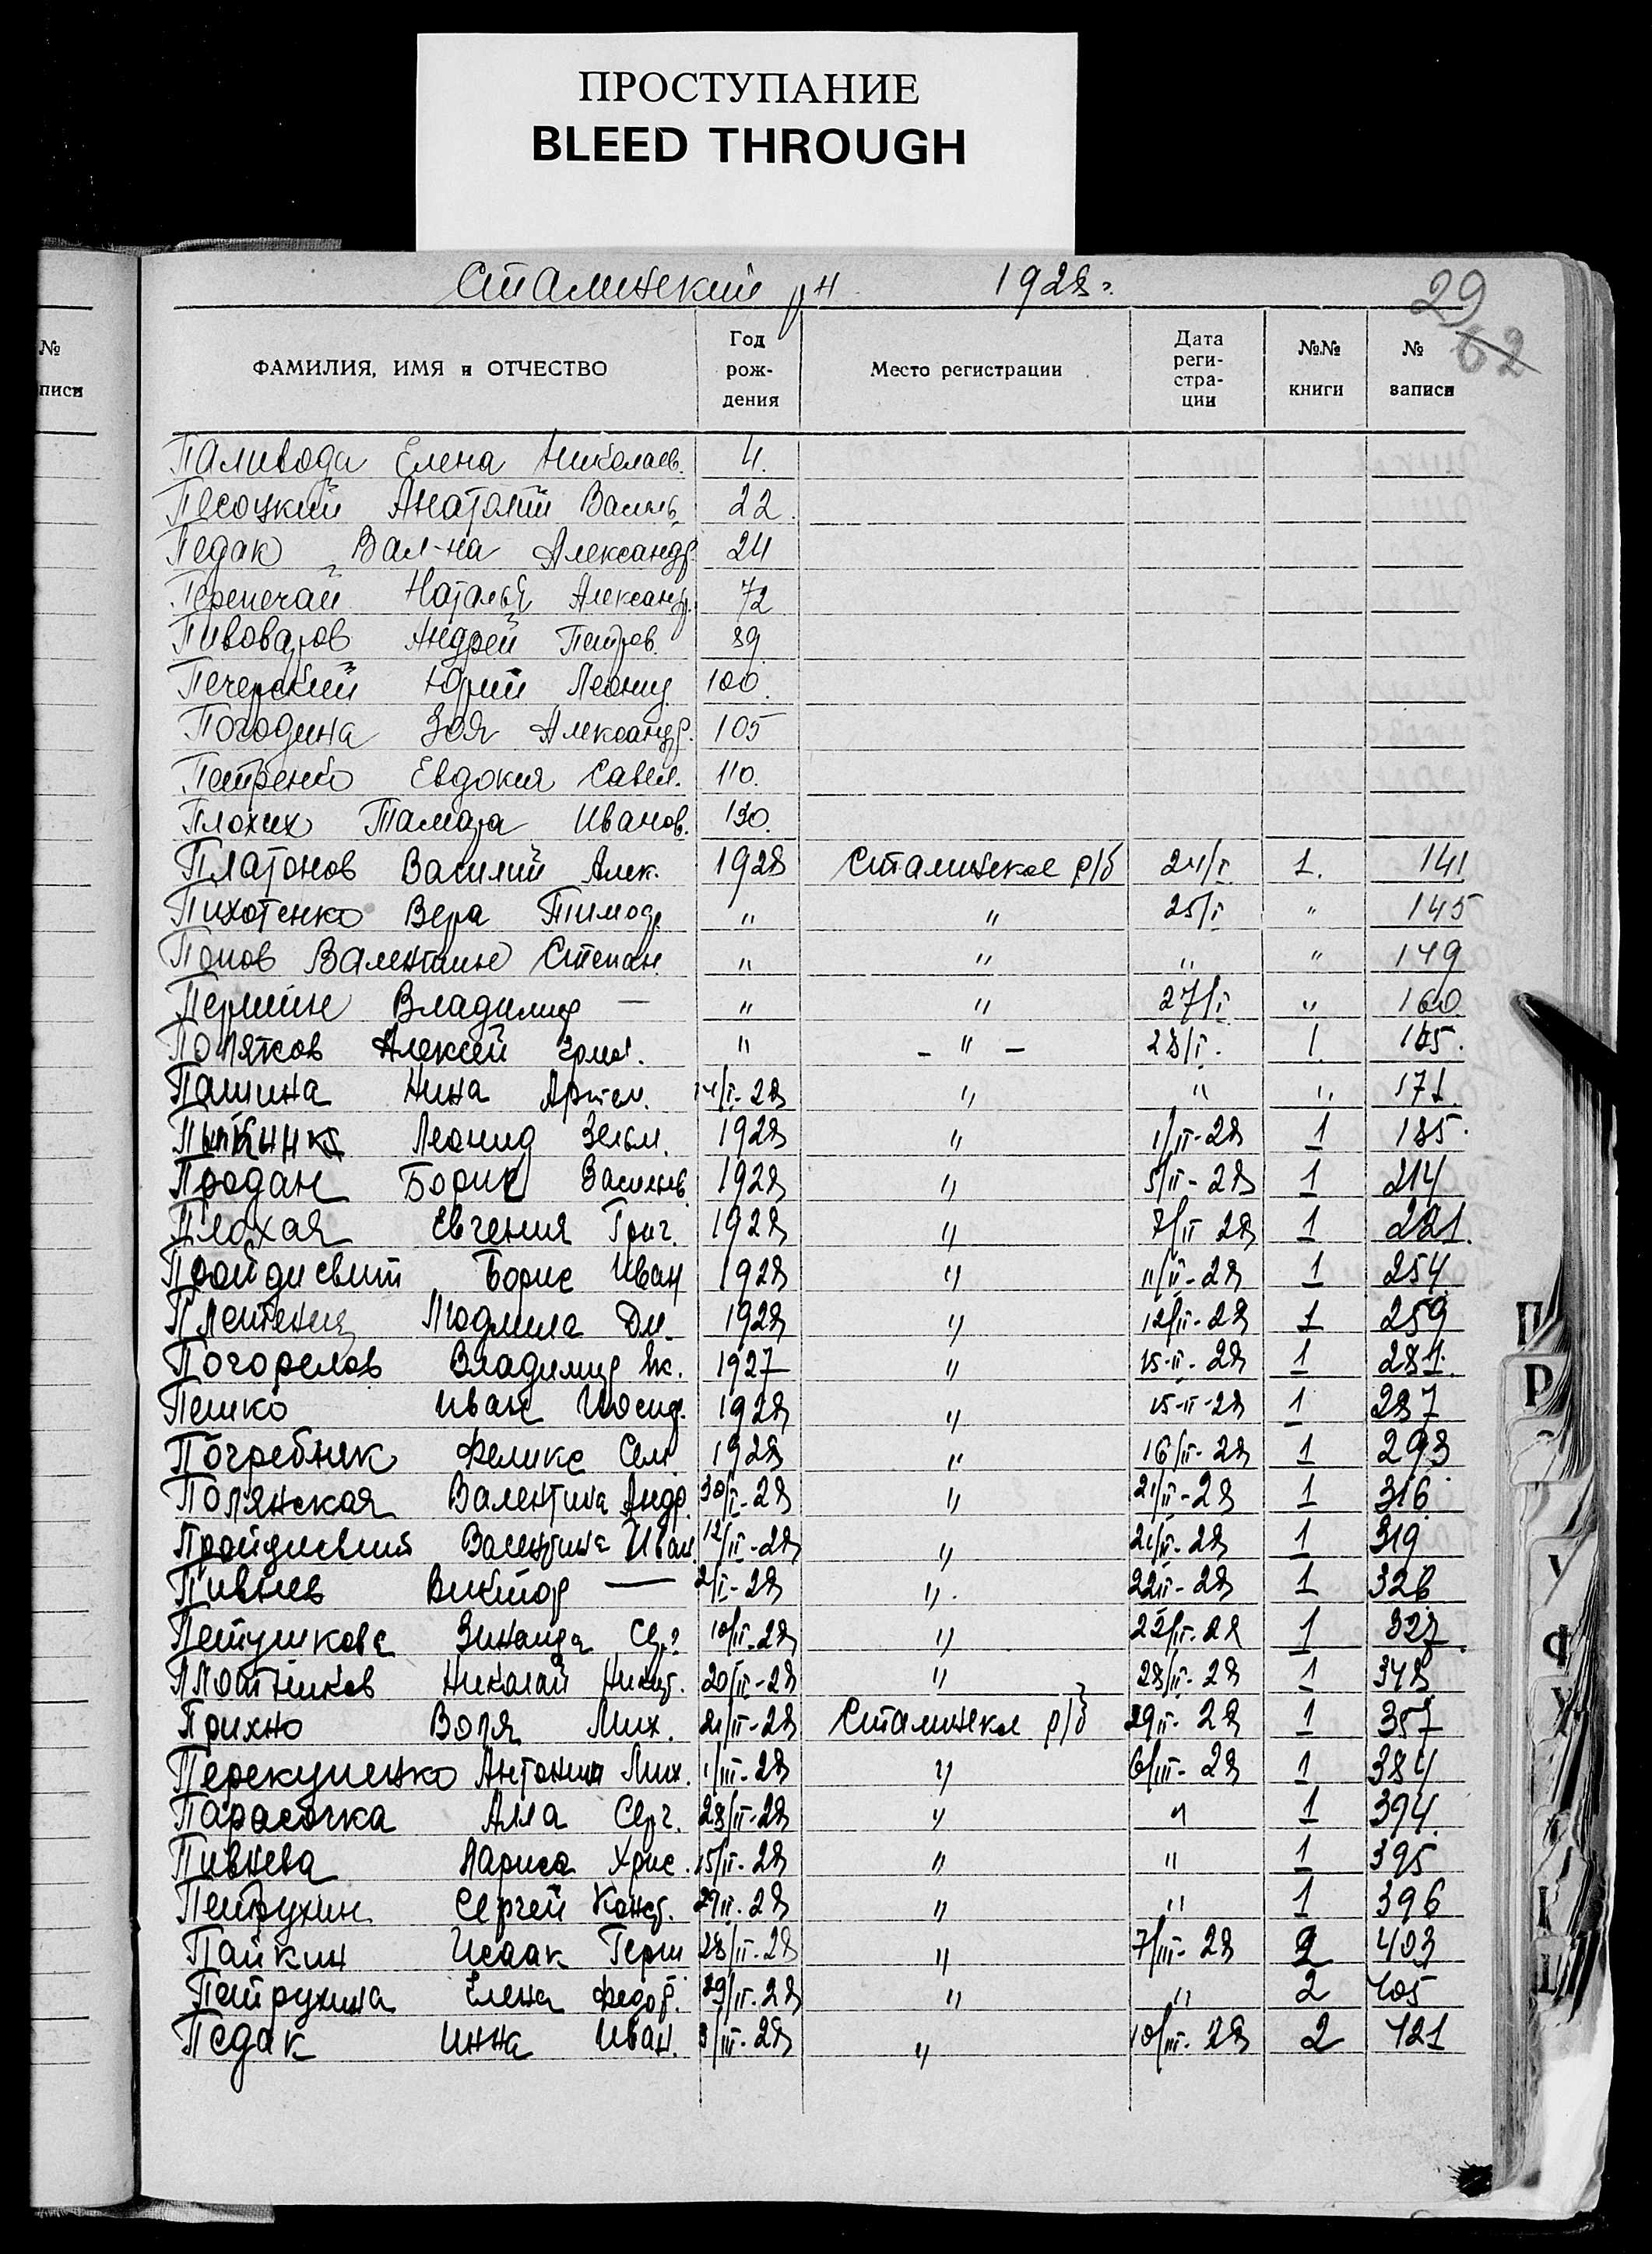 ПРОСТУПАНИЕ
BLEED THROUGH
Сталинский рн 1928 г.
29
62
№
писи
ФАМИЛИЯ, ИМЯ и ОТЧЕСТВО Год рож- дения Место регистрации Дата реги- стра- ции №№ книги № записи
Паливода Елена Николаев. 4.
Песоцкий Анатолий Василь. 22.
Педак Вал-на Александр. 24
Перепечай Наталья Александр. 72
Пивоваров Андрей Петров. 89
Печерский Юрий Леонид. 100.
Погодина Зоя Александр. 105
Петренко Евдокия Савел. 110.
Плохих Тамара Иванов. 130.
Платонов Василий Алек. 1928 Сталинское р/б 24/I 1. 141
Пихотенко Вера Тимоф. " " 25/I " 145
Попов Валентин Степан. " " " " 149
Першин Владимир — " " 27/I " 160
Поляков Алексей " - " - 28/I. 1.
Пашина Нина Артем. 14/I-28 " " " 171
Леонид Зельм. 1928 " 1/II-28 1 185.
Продан Борис Васильев. 1928 " 5/II-28 1 214
Плохая Евгения Григ. 1928 " 7/II 28 1 221.
Пройдисвит Борис Иван 1928 " 11/II-28 1 254
Людмила Дм. 1928 " 12/II-28 1 259
Погорелов Владимир Як. 1927 " 15-II-28 1 281.
Пешко Иван Иосиф. 1928 " 15-II-28 1 287
Погребняк Феликс Сем. 1928 " 16/II-28 1 293
Полянская Валентина Андр. 30/I-28 " 21/II-28 1 316
Пройдисвит Валентина Иван. 12/II-28 " 21/II-28 1 319
Пивнев Виктор — 2/I-28 " 22II-28 1 326
Петушкова Зинаида Сер. 10/II-28 " 22/II-28 1 327.
Плотников Николай Никит. 20/II-28 " 28/II-28 1 348
Прихно Воля Мих. 21/II-28 Сталинское р/б 29II-28 1 357
Перекупенко Антонина Мих. 1/III-28 " 6/III-28 1 384
Парасочка Алла Серг. 28/II-28 " " 1 394.
Пивнева Лариса Хрис. 15/II-28 " " 1 395
Петрухин Сергей Конст. 29II-28 " " 1 396
Пайкин Исаак Герш 28/II-28 " 7/III-28 2 403
Петрухина Елена Федор. 29/II-28 " " 2 405
Педак Инна Иван. 3/III-28 " 10/III-28 2 421
П
Р
У
Ф
Х